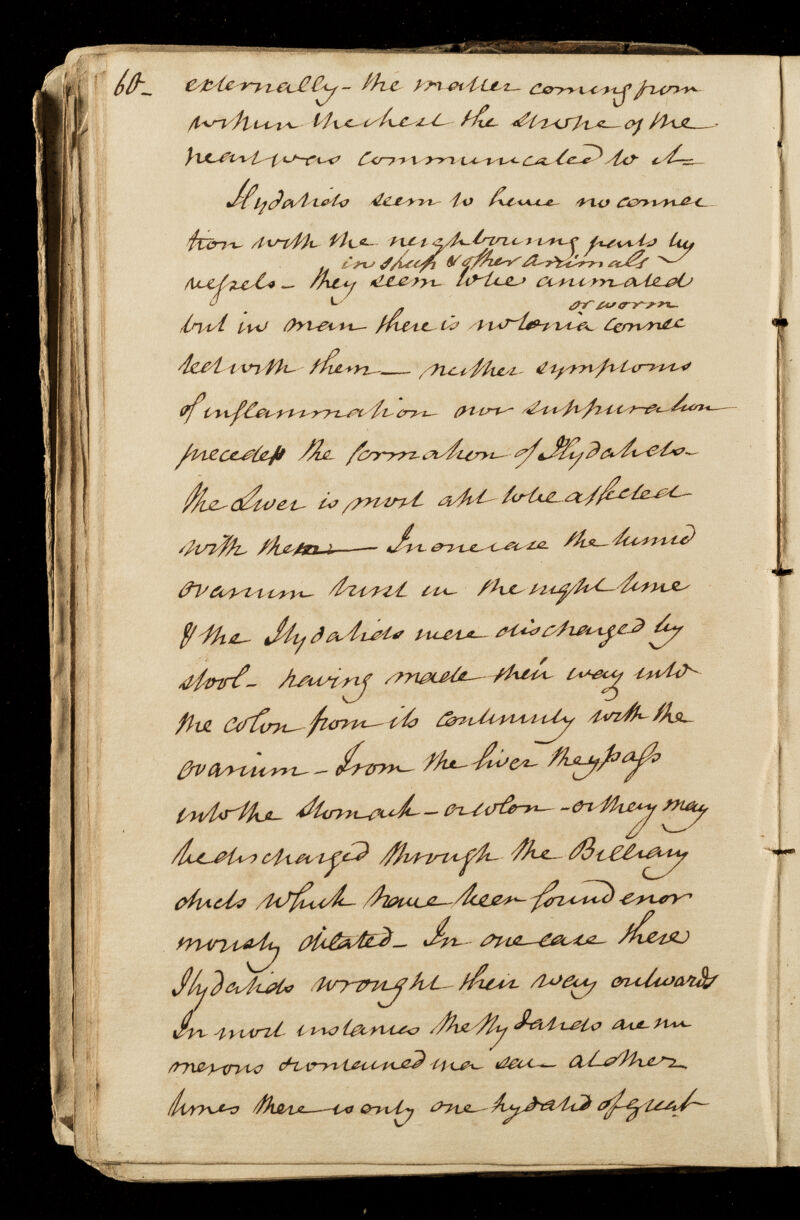 60-
externally - the matter coming from
within the chest the stroke of the
heart was communicated to it =
Hydatids seem to have no connec
tion with the neighbouring parts by
in sheep & other animals
vessels - they seem to be animated
or worm
but in man there is no tænia connec
ted with them - neither symptoms
of inflammation nor suppuration
precede the formation of Hydatids -
the Liver is most apt to be affected
with them - In one case the tumid
ovarium burst in the night time
& the Hydatids were discharged by
stool - having made their way into
the colon from its continuity with the
ovarium - From the liver they pass
into the stomach - or colon - or they may
be discharged through the Billiary
ducts which have been found enor
mously dilated - In one case these
Hydatids wrought their way outwards
In most instances the Hydatids are nu
merous & contained in a sac - at other
times there is only one hydatid of great